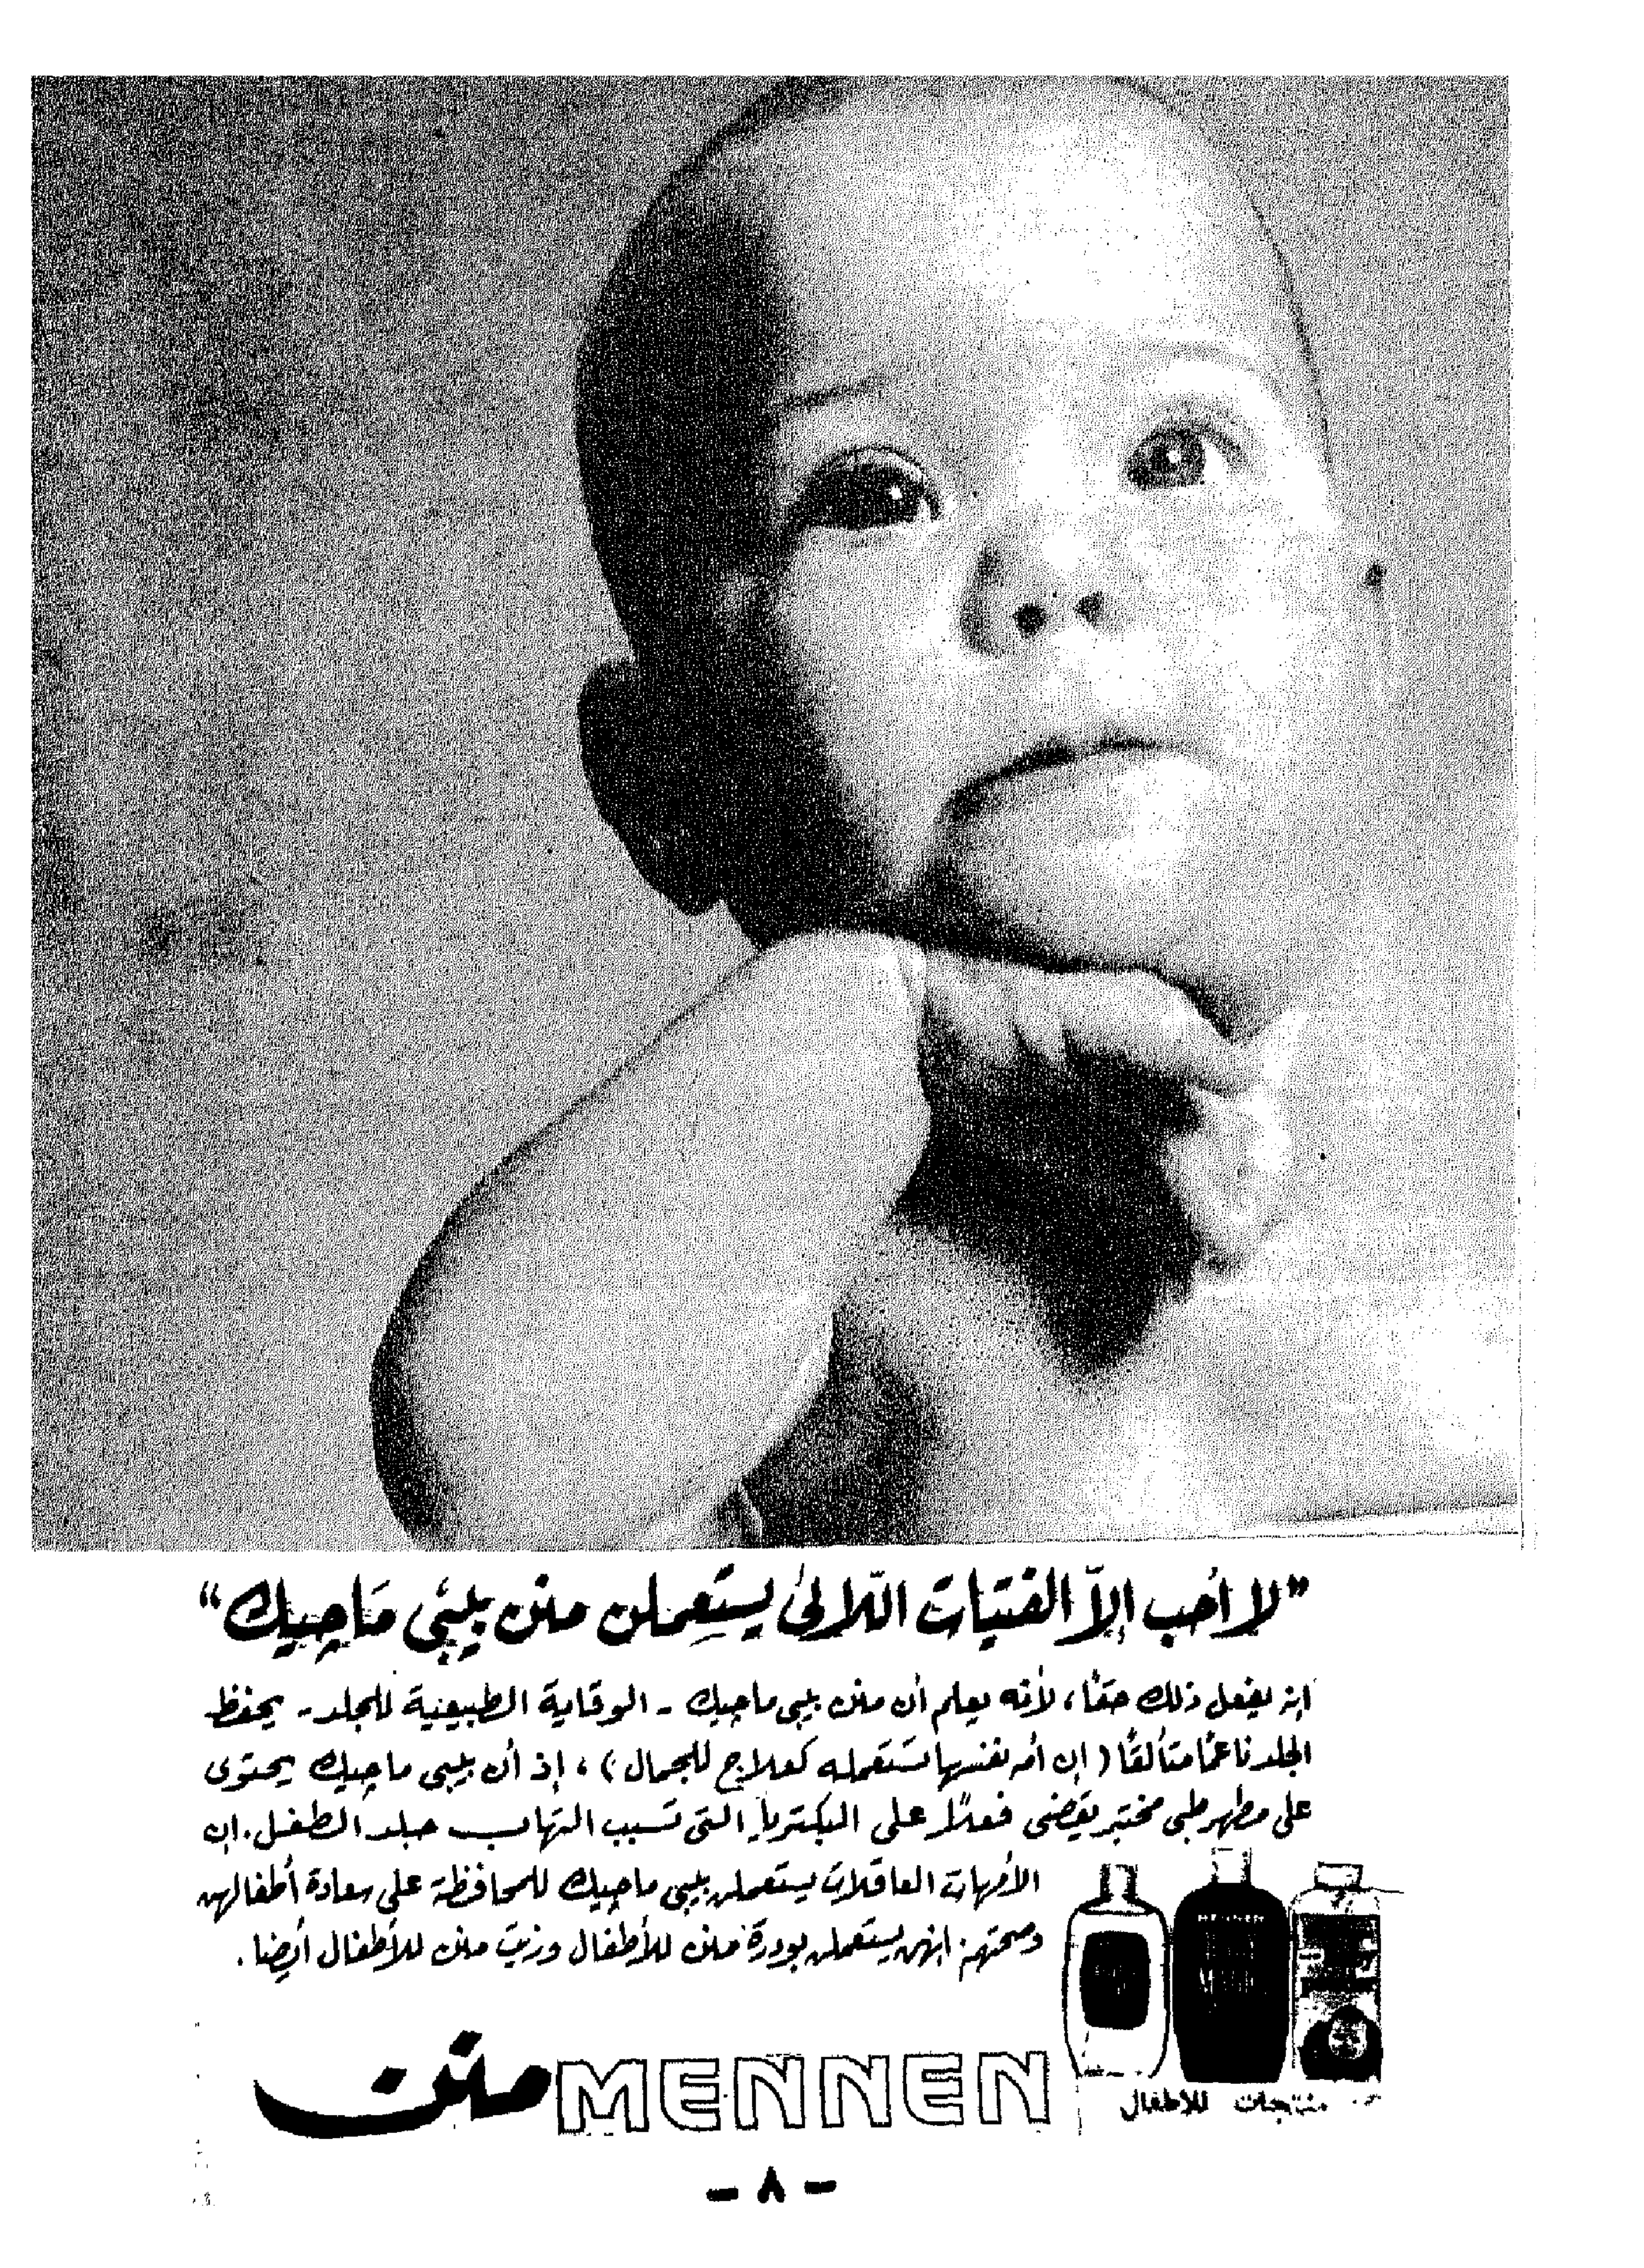 ”لا أحب إلاّ الفتيات اللّائى يستعملن منن بيبى ماجيك“
إنه يفعل ذلك حقًا، لأنه يعلم أن منن بيبى ماجيك - الوقاية الطبيعية للجلد - يحفظ
الجلد ناعمًا متألقًا ( إن أمه نفسها تستعمله كعلاج للجمال ) ، إذ أن بيبى ماجيك يحتوى
على مطهر طبى مختبر يقضى فعلاً على البكتريا التى تسبب التهاب جلد الطفل. إن
الأمهات العاقلات يستعملن بيبى ماجيك للمحافظة على سعادة أطفالهن
وصحتهم. إنهن يستعملن بودرة منن للأطفال وزيت منن للأطفال أيضا .
MENNEN منن
MENNEN
منتجات للأطفال
- ٨ -